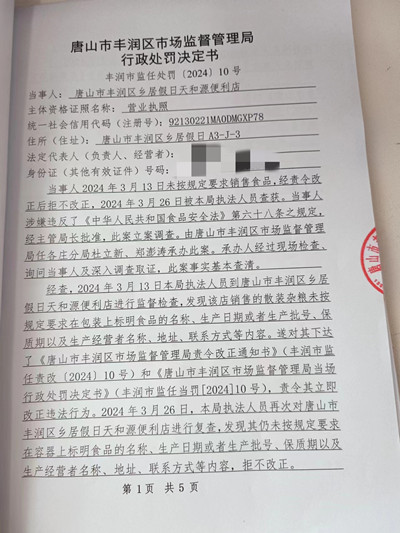 唐山市丰润区市场监督管理局
行政处罚决定书
丰润市监任处罚〔2024〕10号
当事人：唐山市丰润区乡居假日天和源便利店
主体资格证照名称：营业执照
统一社会信用代码（注册号）：92130221MA0DMGXP78
住所（住址）：唐山市丰润区乡居假日A3-J-3
法定代表人（负责人、经营者）：
身份证（其他有效证件）号码：
当事人2024年3月13日未按规定要求销售食品，经责令改
正后拒不改正，2024年3月26日被本局执法人员查获。当事人
涉嫌违反了《中华人民共和国食品安全法》第六十八条之规定，
经主管局长批准，此案立案调查。由唐山市丰润区市场监督管理
局任各庄分局杜立新、郑澎涛承办此案。承办人经过现场检查、
询问当事人及深入调查取证，此案事实基本查清。
经查，2024年3月13日本局执法人员到唐山市丰润区乡居
假日天和源便利店进行监督检查，发现该店销售的散装杂粮未按
规定要求在包装上标明食品的名称、生产日期或者生产批号、保
质期以及生产经营者名称、地址、联系方式等内容。遂对其下达
了《唐山市丰润区市场监督管理局责令改正通知书》（丰润市监
任责改〔2024〕10号）和《唐山市丰润区市场监督管理局当场
行政处罚决定书》（丰润市监任当罚[2024]10号），责令其立即
改正违法行为。2024年3月26日，本局执法人员再次对唐山市
丰润区乡居假日天和源便利店进行复查，发现其仍未按规定要求
在容器上标明食品的名称、生产日期或者生产批号、保质期以及
生产经营者名称、地址、联系方式等内容，拒不改正。
第1页 共5页